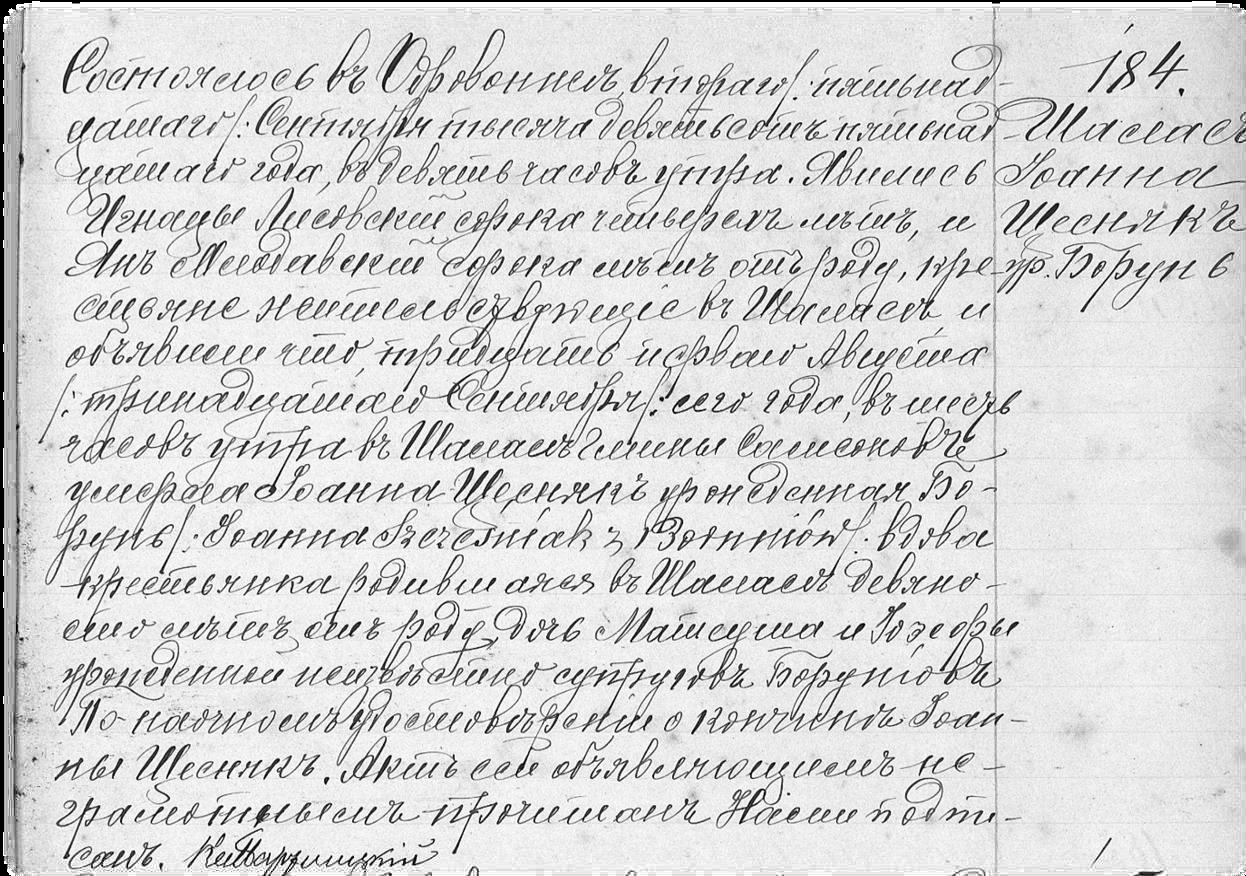 184.
Шаласъ
Іоанна
Щеснякъ
ур. Борунь
Состоялось въ Одровонжѣ, втораго /: пятьнад-
цатаго /: Сентября тысяча девятьсотъ пятьнад-
цатаго года, въ девять часовъ утра. Явились
Игнацы Лисовскій сорока четырехъ лѣтъ, и
Янъ Млодавскій сорока лѣтъ отъ роду, кре-
стьяне жительствующіе въ Шаласѣ, и
объявили что, тридцать перваго Августа
/: тринадцатаго Сентября /: сего года, въ шесть
часовъ утра въ Шаласѣ гмины Самсоновъ
умерла Іоанна Щеснякъ урожденная Бо-
рунь /: Joanna Szcześniak z /: вдова
крестьянка родившаяся въ Шаласѣ девяно-
сто лѣтъ отъ роду, дочь Матеуша и Іозефы
урожденной неизвѣстно супруговъ Боруніовъ
По наочномъ удостовѣреніи о кончинѣ Іоан-
ны Щеснякъ. Актъ сей объявляющимъ не-
грамотнымъ прочитанъ Нами подпи-
санъ.